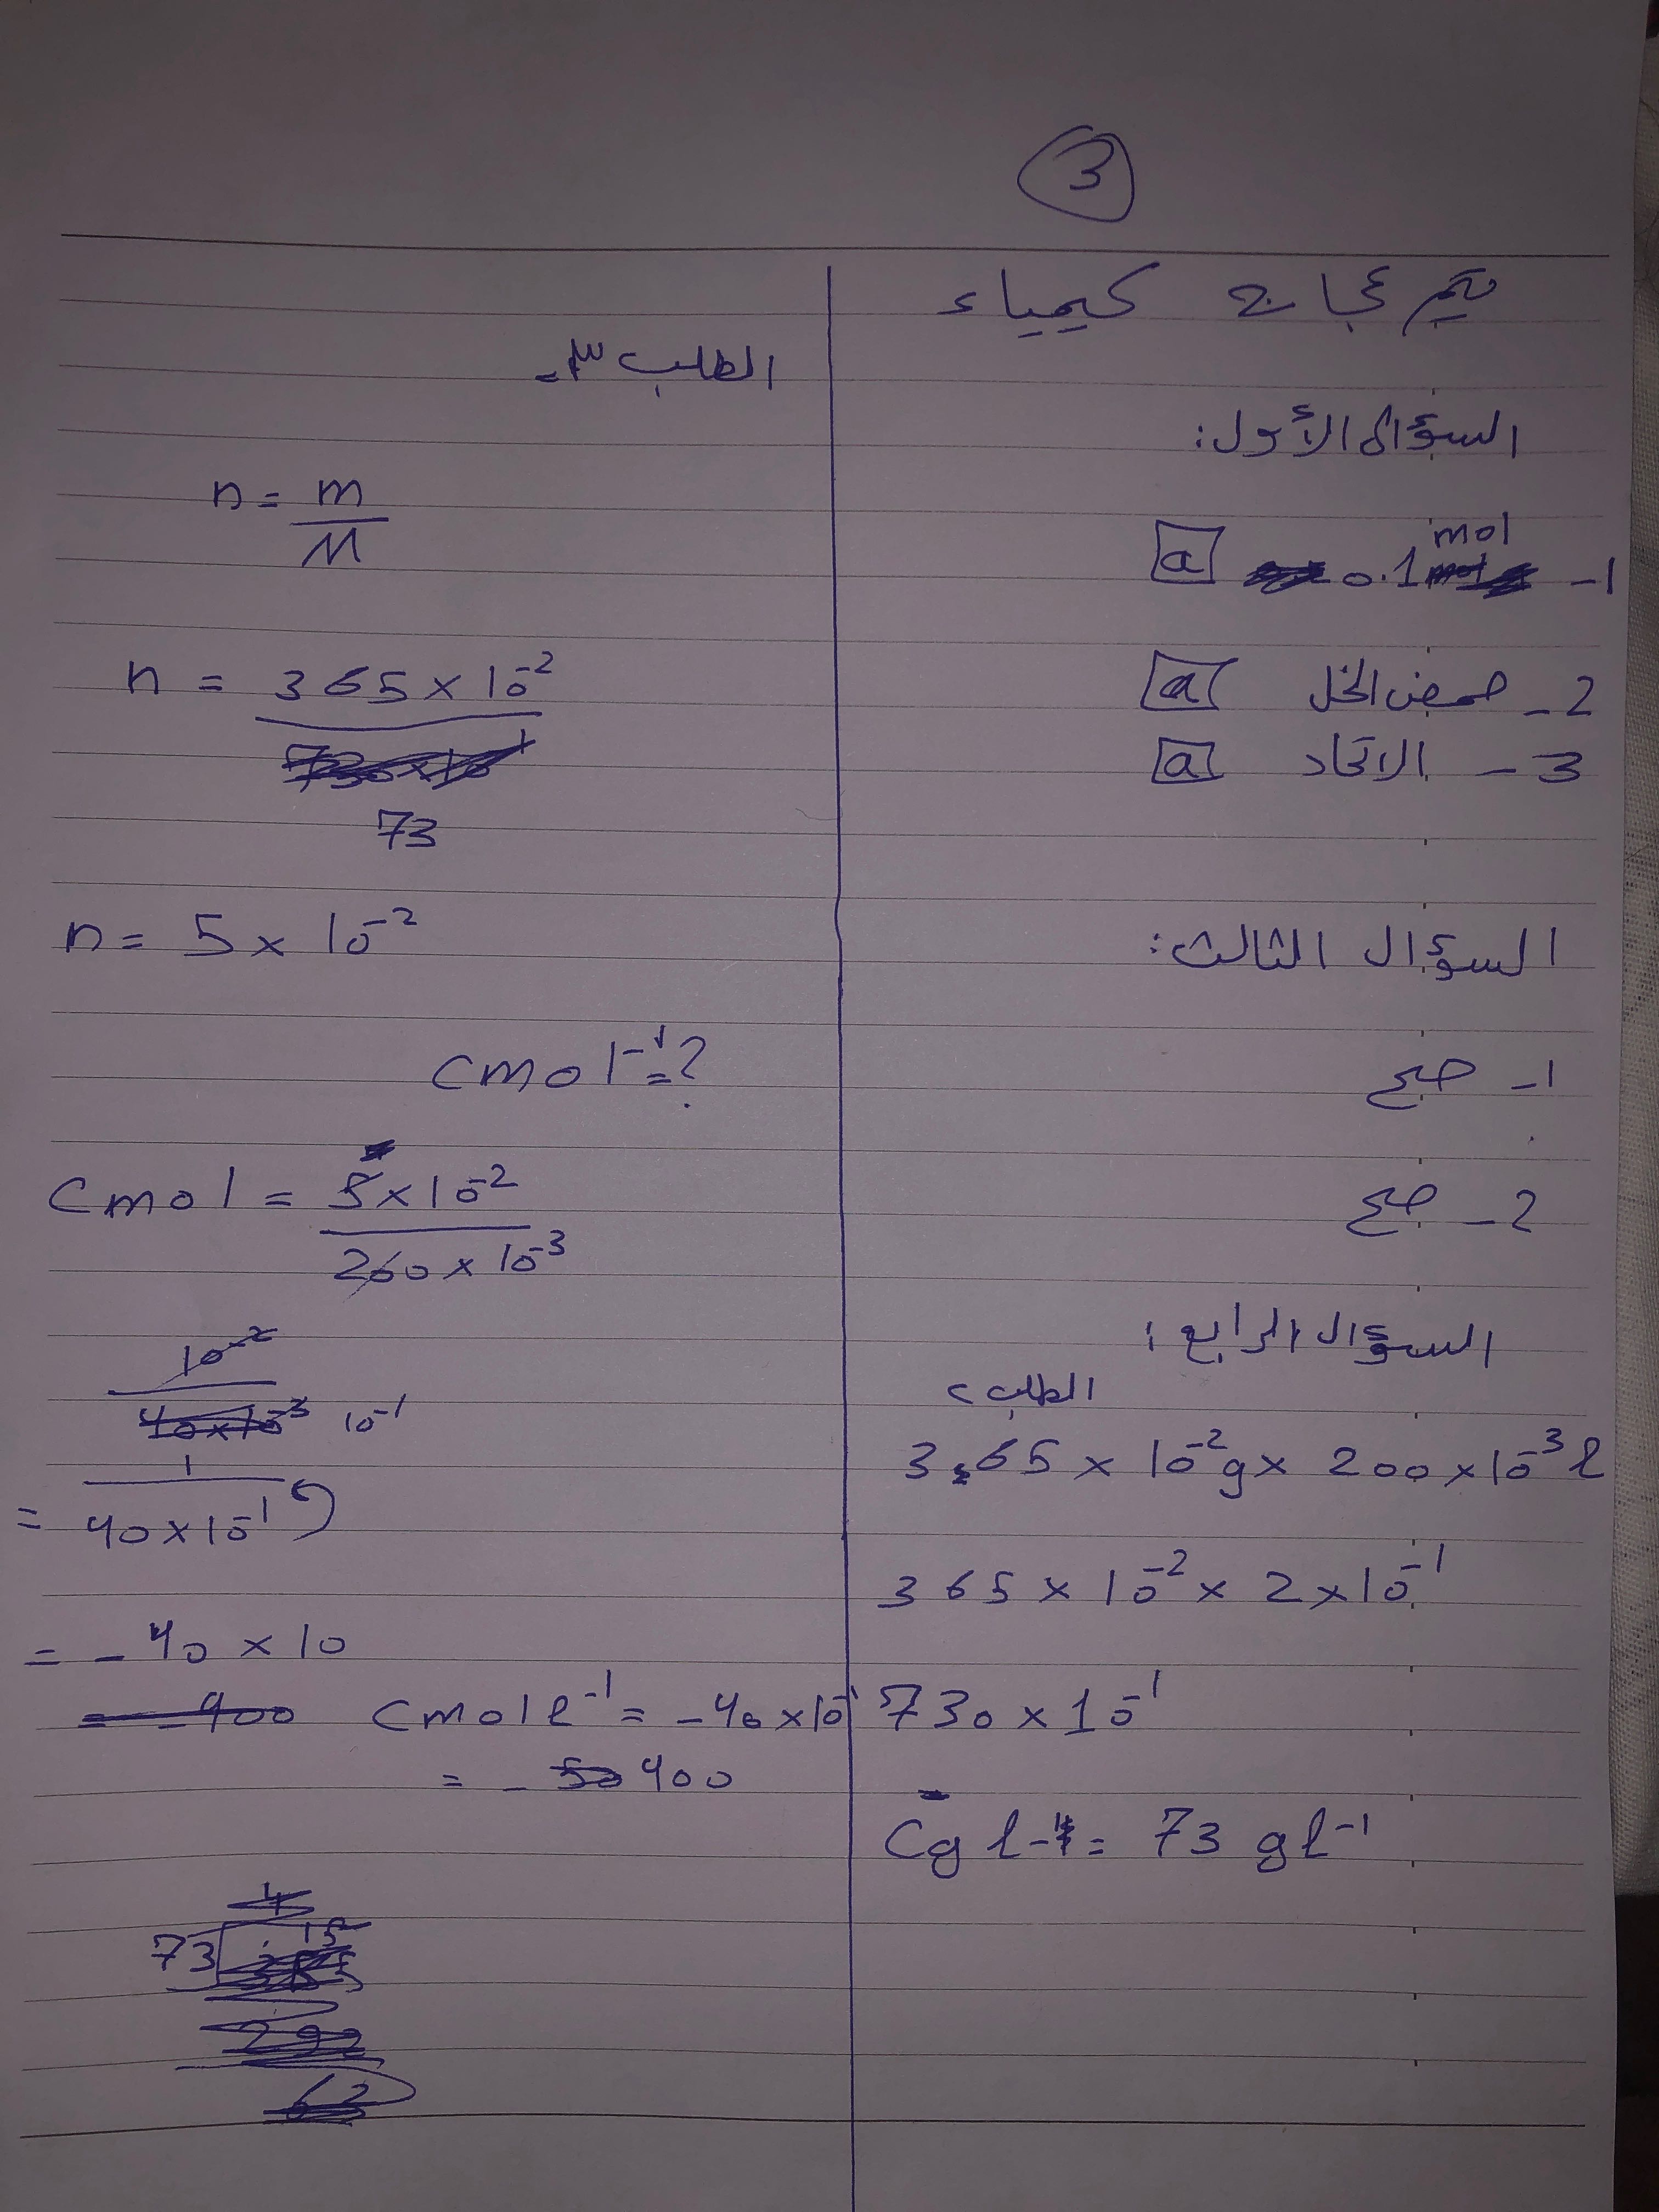 3
تيم عجاج كيمياء
السؤال الأول:
1- 0.1 mol a
2- حمض الخل a
3- الاتحاد a
السؤال الثالث:
1- صح
2- صح
السؤال الرابع:
الطلب ٢
3.65 × 10⁻² g × 200 × 10⁻³ l
365 × 10⁻² × 2 × 10⁻¹
730 × 10⁻¹
Cg l⁻¹ = 73 gl⁻¹
الطلب ٣-
n = m
M
n = 365 × 10⁻²
73
n = 5 × 10⁻²
Cmol l⁻¹ = ?
Cmol = 5 × 10⁻²
200 × 10⁻³
10⁻²
40 × 10⁻³ 10⁻¹
1
= 40 × 10⁻¹
= - 40 × 10
Cmol l⁻¹ = - 40 × 10¹
= - 400
73
15